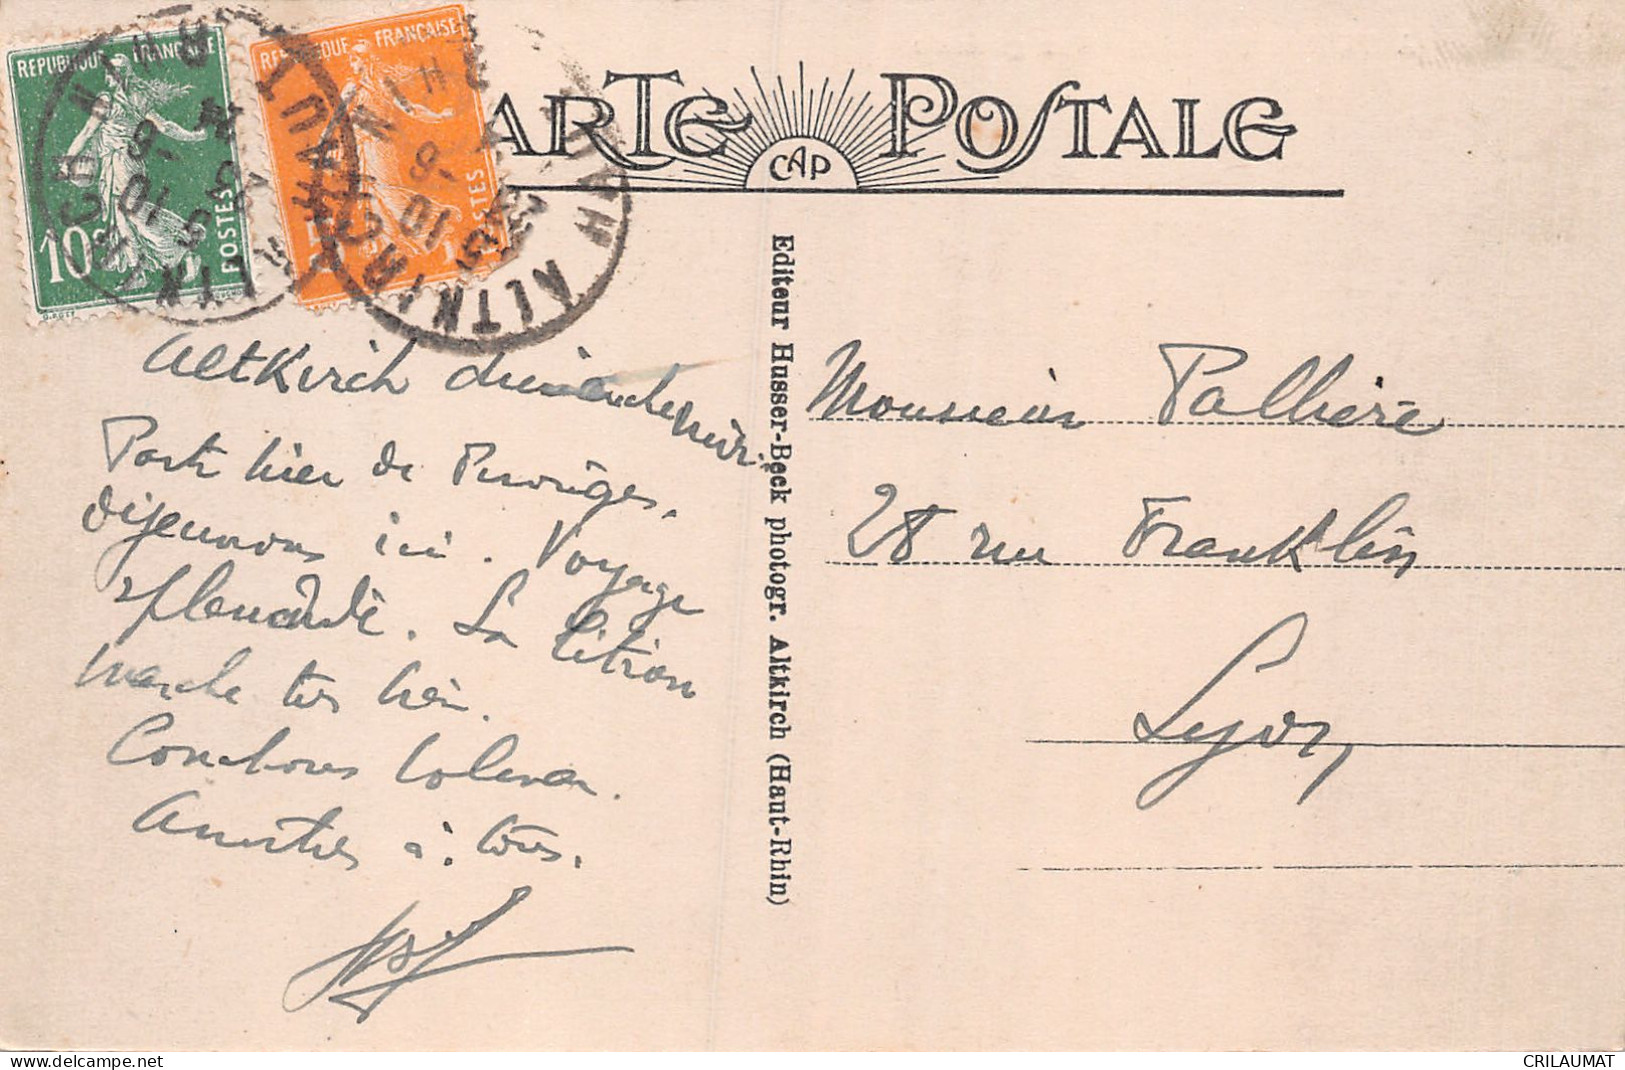 REPUBLIQUE FRANÇAISE
10c
POSTES
REPUBLIQUE FRANÇAISE
POSTES
ALTKIRCH
HAUT-RHIN
CARTE POSTALE
CAP
Altkirch dimanche midi.
Parti hier de Pérouges,
déjeunons ici. Voyage
splendide. La Citroën
marche très bien.
Couchons Colmar.
Amitiés à tous.
Editeur Husser-Beck photogr. Altkirch (Haut-Rhin)
Monsieur Pallière
28 rue Franklin
Lyon
CRILAUMAT